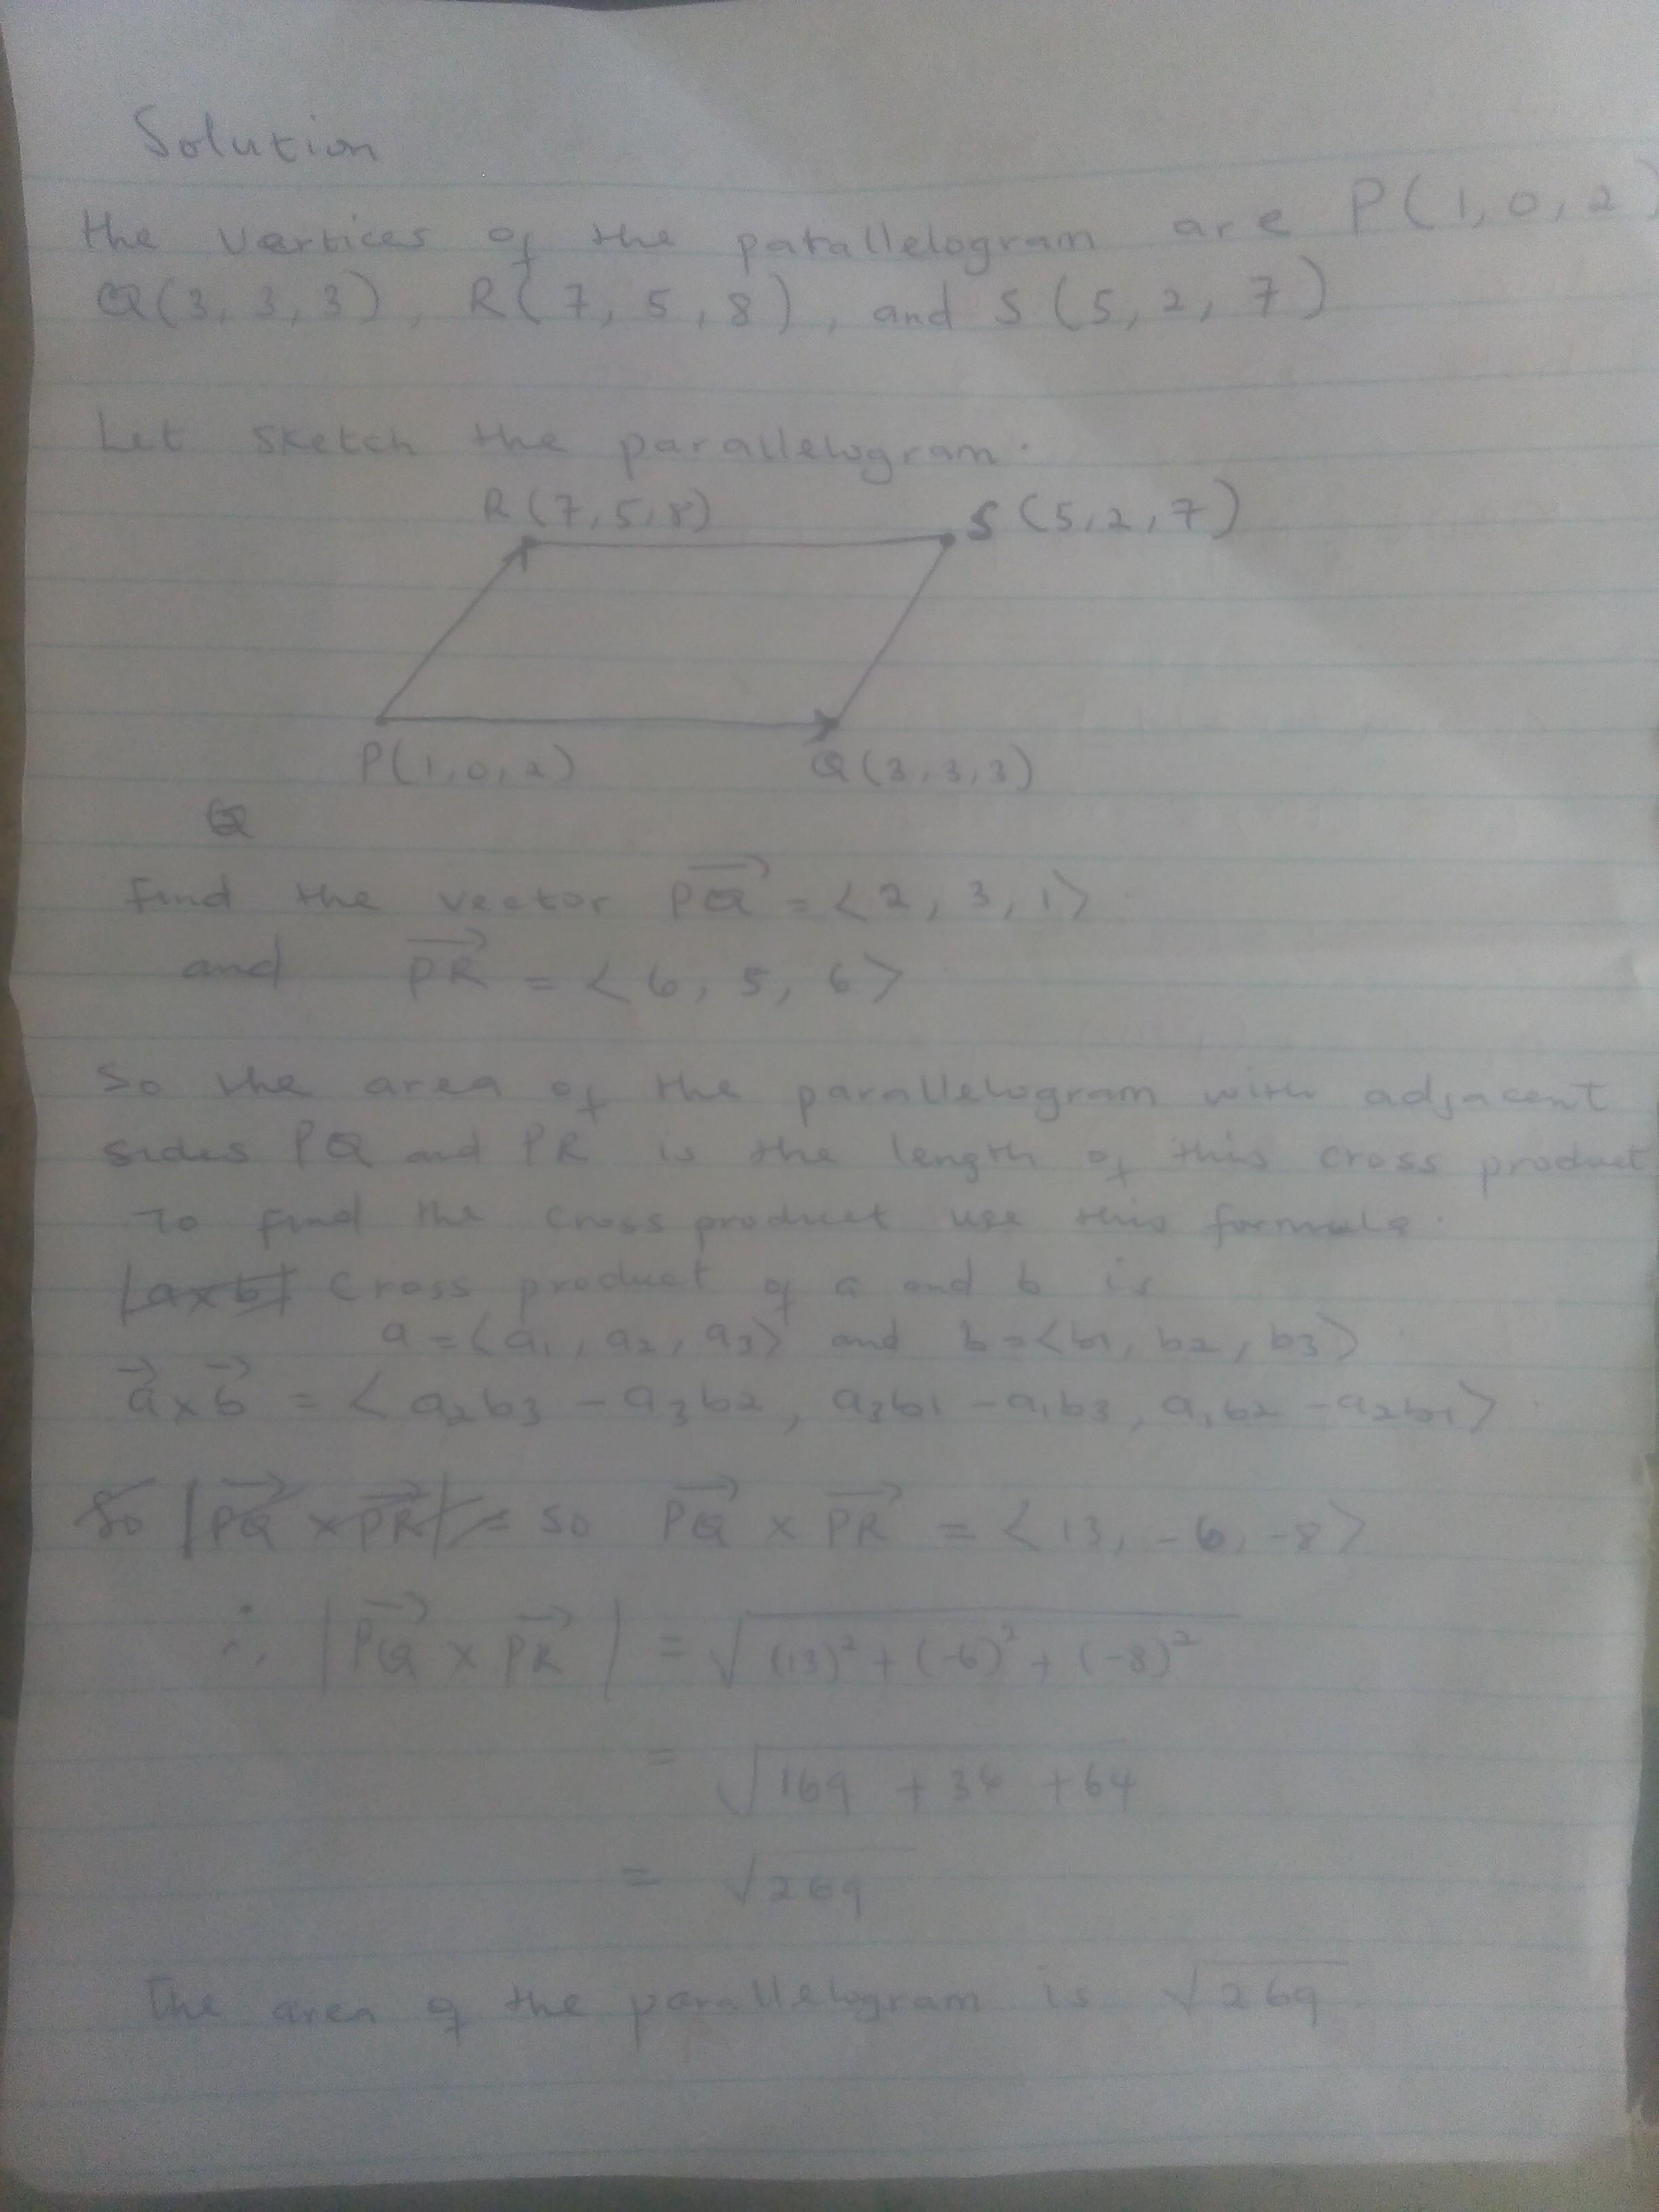 Solution
the vertices of the parallelogram are P(1,0,2)
Q(3,3,3), R(7,5,8), and S(5,2,7)
Let sketch the parallelogram.
R(7,5,8) S(5,2,7)
P(1,0,2) Q(3,3,3)
Q
find the vector PQ = <2, 3, 1>
and PR = <6, 5, 6>
So the area of the parallelogram with adjacent
sides PQ and PR is the length of this cross product
To find the cross product use this formula.
|a×b| Cross product of a and b is
a = <a1, a2, a3> and b = <b1, b2, b3>
a×b = <a2b3 - a3b2, a3b1 - a1b3, a1b2 - a2b1>
So |PQ × PR| = so PQ × PR = <13, -6, -8>
∴ |PQ × PR| = √(13)² + (-6)² + (-8)²
= √169 + 36 + 64
= √269
The area of the parallelogram is √269